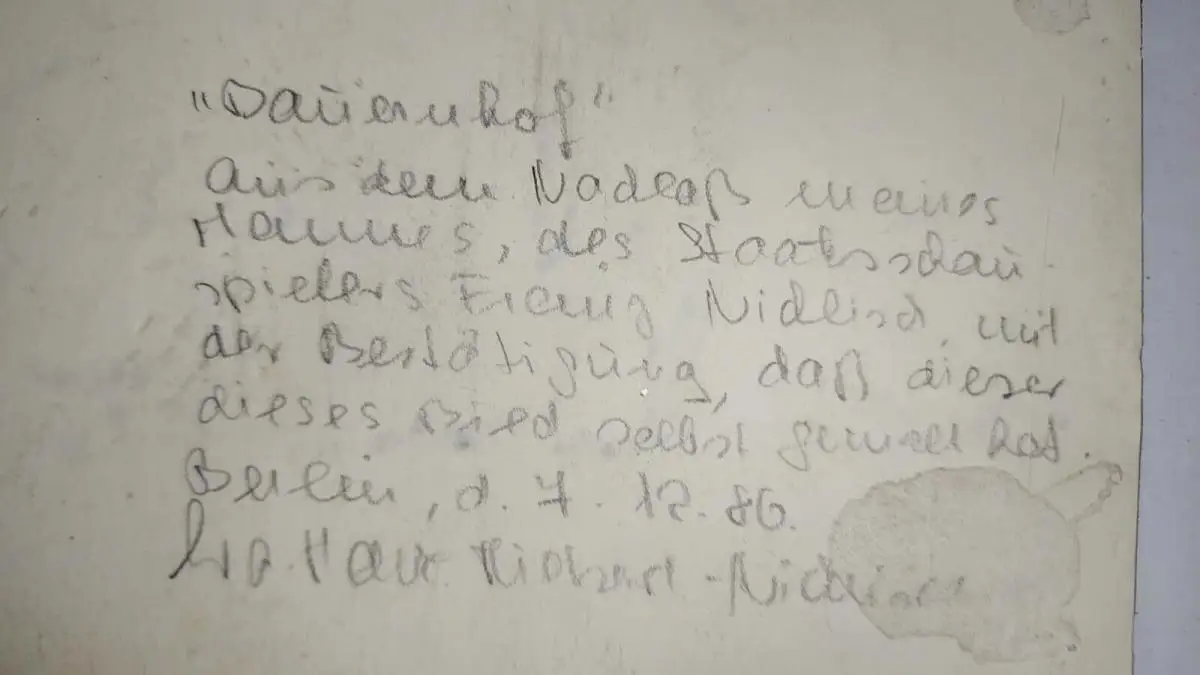 "Bauernhof"
Aus dem Nachlaß meines
Mannes, des Staatsschau-
spielers Franz Nicklisch, mit
der Bestätigung, daß dieser
dieses Bild selbst gemalt hat.
Berlin, d. 7. 12. 86.
Nicklisch